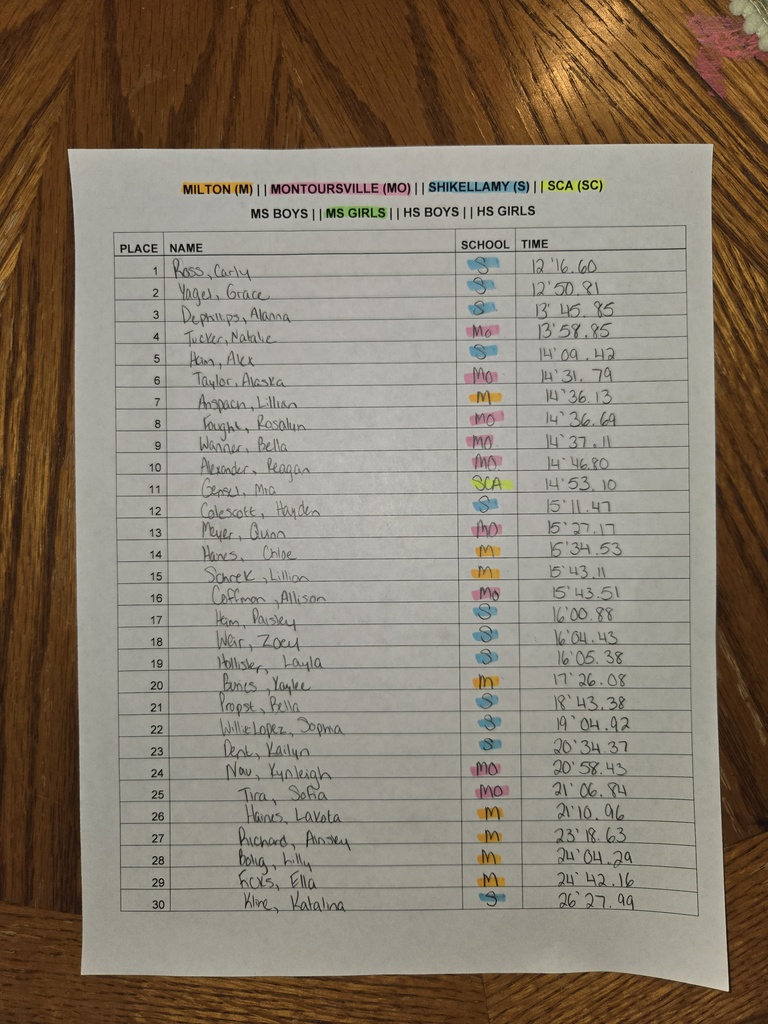 MILTON (M) || MONTOURSVILLE (MO) || SHIKELLAMY (S) || SCA (SC)
MS BOYS || MS GIRLS || HS BOYS || HS GIRLS
PLACE NAME SCHOOL TIME
1 Ross, Carly S 12'16.60
2 Yagel, Grace S 12'50.81
3 Dephillips, Alanna S 13'45.85
4 Tucker, Natalie Mo 13'58.85
5 Ham, Alex S 14'09.42
6 Taylor, Alaska MO 14'31.79
7 Anspach, Lillian M 14'36.13
8 Fought, Rosalyn MO 14'36.69
9 Wanner, Bella MO 14'37.11
10 Alexander, Reagan MO 14'46.80
11 Gensel, Mia SCA 14'53.10
12 Colescott, Hayden S 15'11.47
13 Meyer, Quinn MO 15'27.17
14 Chloe M 15'34.53
15 Schrek, Lillian M 15'43.11
16 Coffman, Allison Mo 15'43.51
17 Ham, Paisley S 16'00.88
18 Weir, Zoey S 16'04.43
19 Hollister, Layla S 16'05.38
20 Kaylee M 17'26.08
21 Propst, Bella S 18'43.38
22 Sophia S 19'04.92
23 Dent, Kailyn S 20'34.37
24 Kynleigh MO 20'58.43
25 Tira, Sofia MO 21'06.84
26 Haines, Lakota M 21'10.96
27 Richard, Ainsley M 23'18.63
28 Bolig, Lilly M 24'04.29
29 Ella M 24'42.16
30 Kline, Katalina S 26'27.99